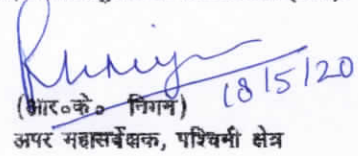 18/5/20
(आर०के० निगम)
अपर महासर्वेक्षक, पश्चिमी क्षेत्र